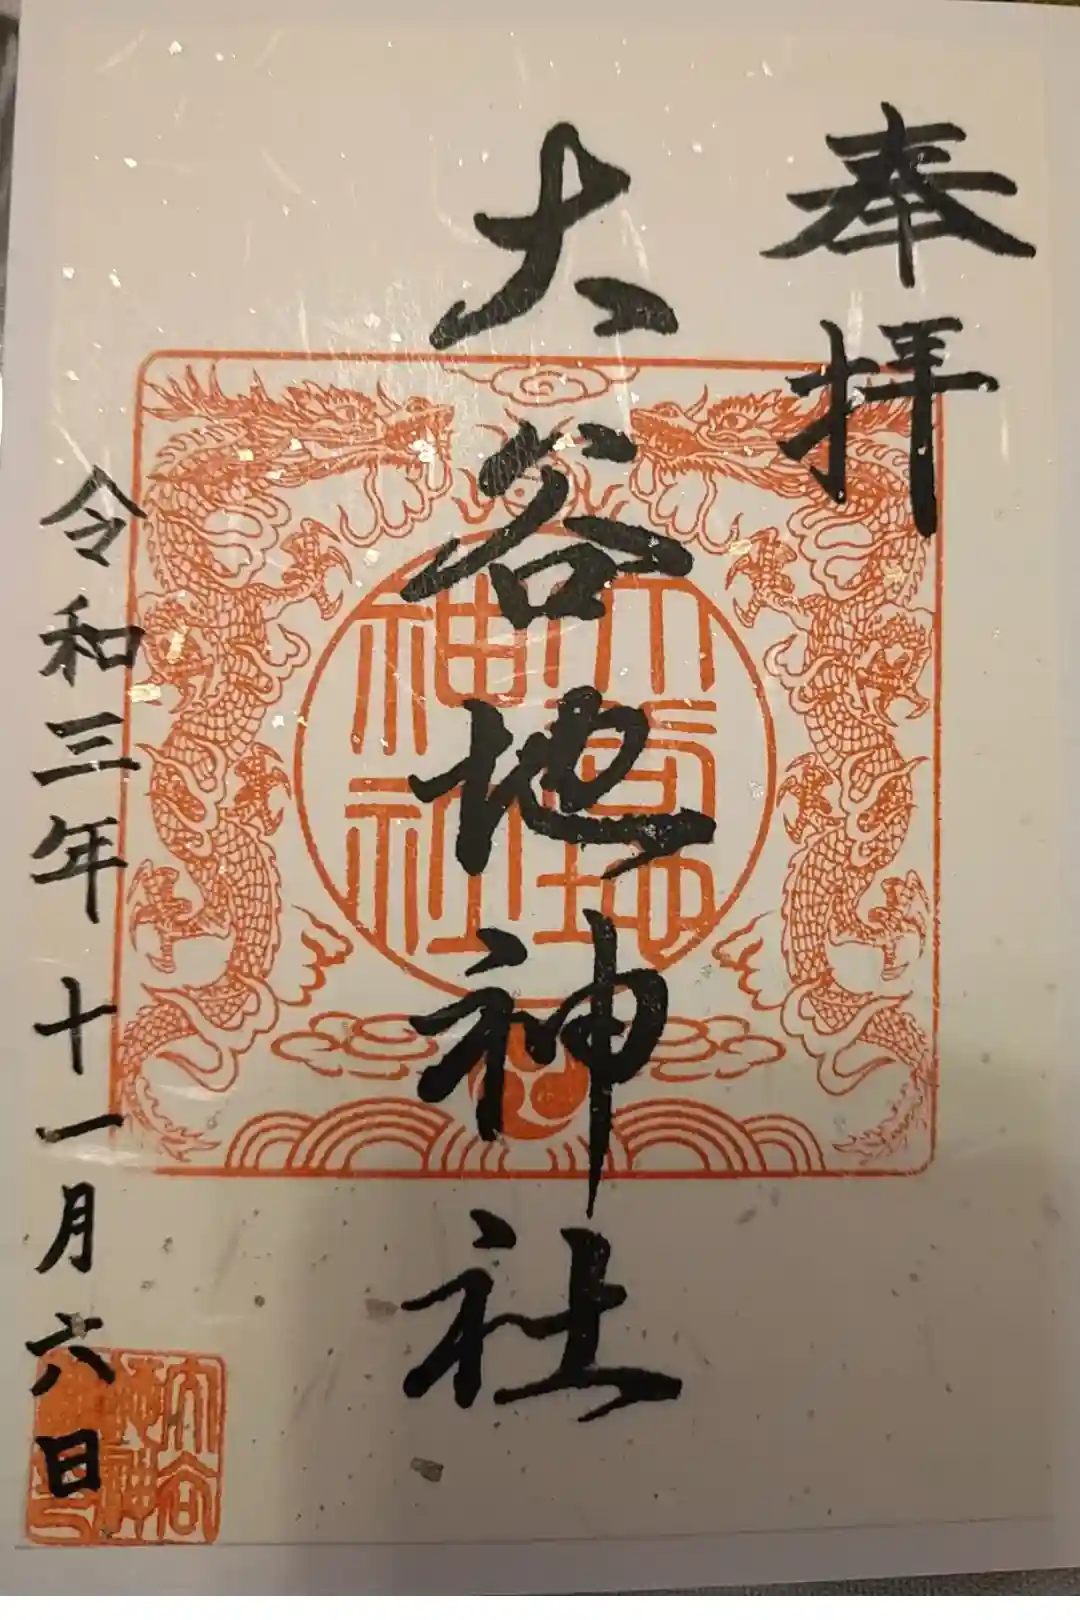 奉拝
大谷地神社
令和三年十一月六日
大谷地神社